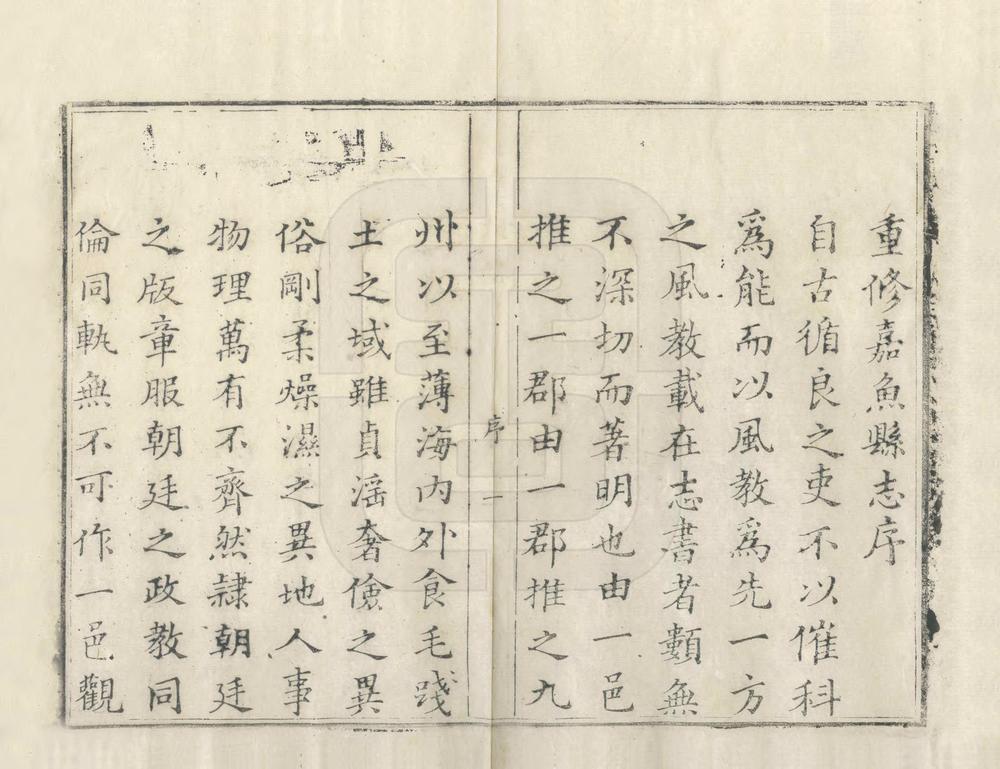 重修嘉魚縣志序
自古循良之吏不以催科
爲能而以風教爲先一方
之風教載在志書者顜無
不深切而著明也由一邑
推之一郡由一郡推之九
序
一
州以至薄海内外食毛踐
土之域雖貞滛奢儉之異
俗剛柔燥濕之異地人事
物理萬有不齊然隷朝廷
之版章服朝廷之政教同
倫同軌無不可作一邑觀